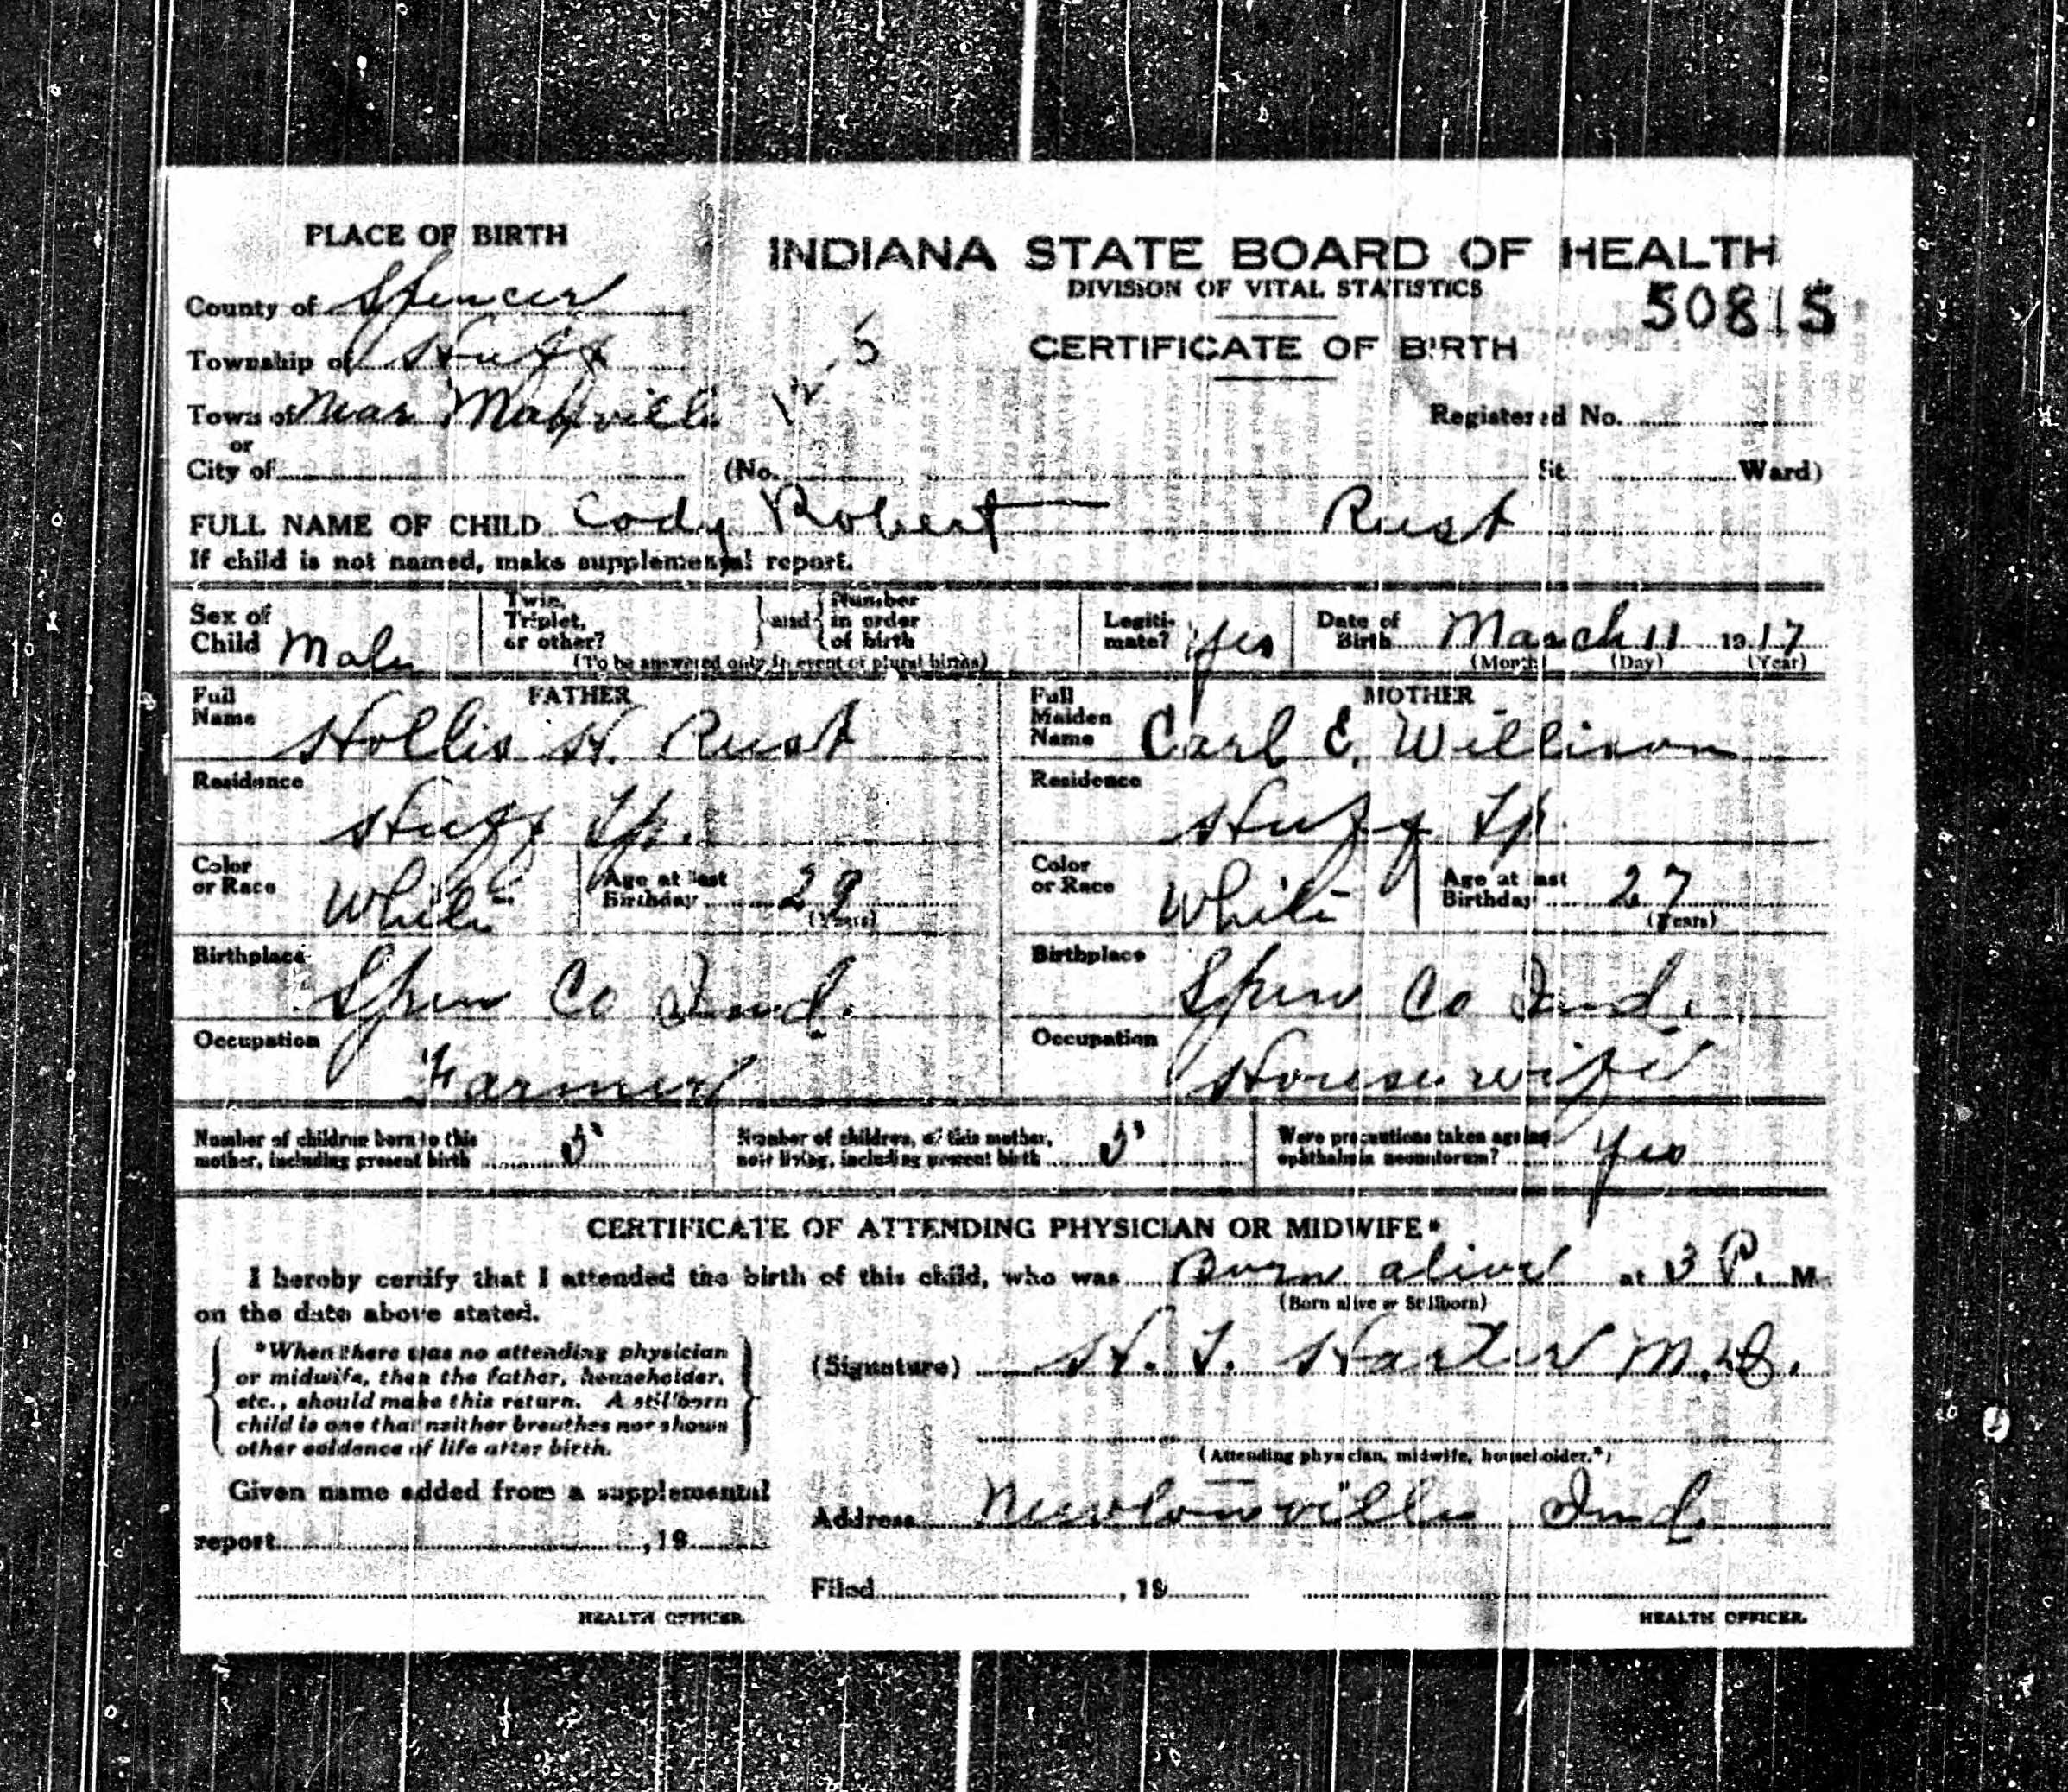 PLACE OF BIRTH
INDIANA STATE BOARD OF HEALTH
DIVISION OF VITAL STATISTICS
50815
County of Spencer
CERTIFICATE OF BIRTH
Township of Huff
12-5
Town of Near Maxville
Registered No.
or
City of (No. St. Ward)
FULL NAME OF CHILD Cody Robert Rust
If child is not named, make supplemental report.
Sex of Child Male
Twin, Triplet, or other? and Number in order of birth
(To be answered only in event of plural births)
Legiti-mate? Yes
Date of Birth March 11 1917
(Month) (Day) (Year)
FATHER
Full Name Hollis H. Rust
MOTHER
Full Maiden Name Carl E. Willison
Residence Huff Tp.
Residence Huff Tp.
Color or Race White
Age at last Birthday 29
(Years)
Color or Race White
Age at last Birthday 27
(Years)
Birthplace Spen Co Ind.
Birthplace Spen Co Ind.
Occupation Farmer
Occupation Housewife
Number of children born to this mother, including present birth
Number of children, of this mother, now living, including present birth
Were precautions taken against ophthalmia neonatorum? Yes
CERTIFICATE OF ATTENDING PHYSICIAN OR MIDWIFE*
I hereby certify that I attended the birth of this child, who was Born alive at 3 P. M.
(Born alive or Stillborn)
on the date above stated.
*When there was no attending physician
or midwife, then the father, householder,
etc., should make this return. A stillborn
child is one that neither breathes nor shows
other evidence of life after birth.
(Signature) H. T. Harter M.D.
(Attending physician, midwife, householder.*)
Given name added from a supplemental
report , 19
Address Newtonville Ind.
Filed , 19
HEALTH OFFICER.
HEALTH OFFICER.